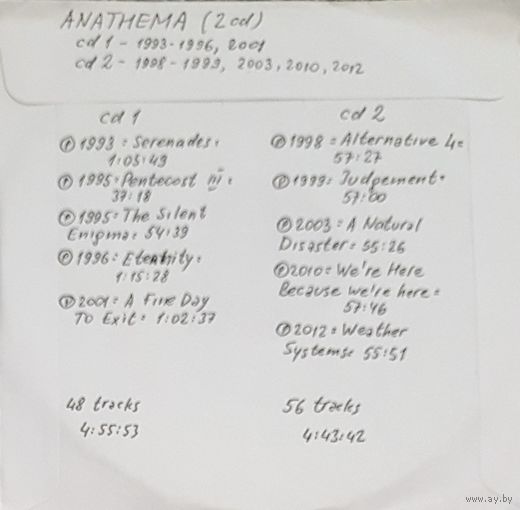 ANATHEMA (2cd)
cd 1 - 1993-1996, 2001
cd 2 - 1998-1999, 2003, 2010, 2012
cd 1
℗ 1993 = Serenades =
1:05:49
℗ 1995 = Pentecost III =
37:18
℗ 1995 = The Silent
Enigma = 54:39
℗ 1996 = Eternity =
1:15:28
℗ 2001 = A Fine Day
To Exit = 1:02:37
48 tracks
4:55:53
cd 2
℗ 1998 = Alternative 4 =
57:27
℗ 1999 = Judgement =
57:00
℗ 2003 = A Natural
Disaster = 55:26
℗ 2010 = We're Here
Because we're here =
57:46
℗ 2012 = Weather
Systems = 55:51
56 tracks
4:43:42
www.ay.by